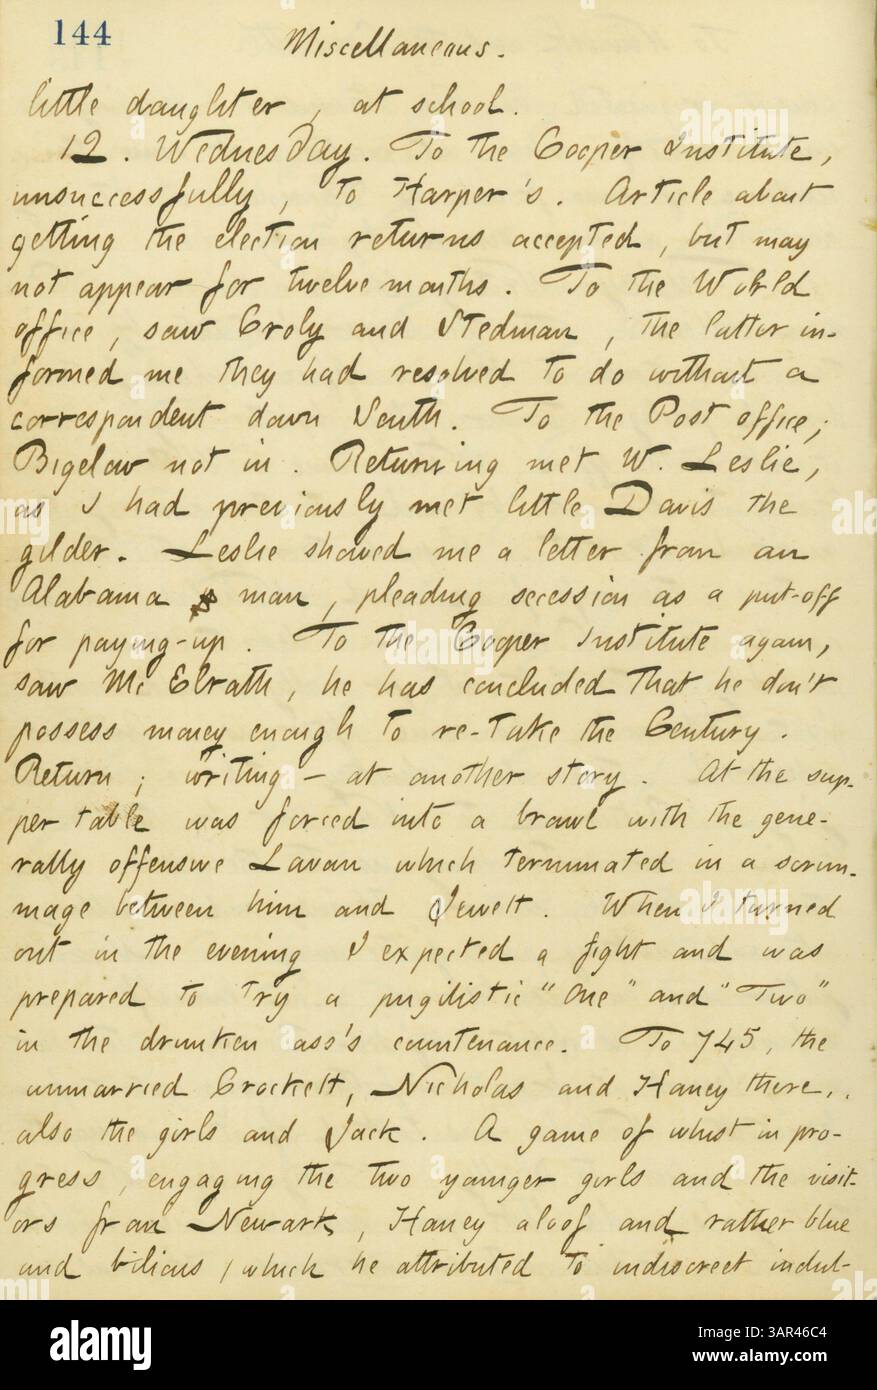 144
Miscellaneous.
little daughter, at school.
12. Wednesday. To the Cooper Institute,
unsuccessfully, to Harper's. Article about
getting the election returns accepted, but may
not appear for twelve months. To the World
office, saw Croly and Stedman, the latter in-
formed me they had resolved to do without a
correspondent down South. To the Post office;
Bigelow not in. Returning met W. Leslie,
as I had previously met little Davis the
gilder. Leslie showed me a letter from an
Alabama man, pleading secession as a put-off
for paying-up. To the Cooper Institute again,
saw Mc Elrath, he has concluded that he don't
possess money enough to re-take the Century.
Return; writing - at another story. At the sup-
per table was forced into a brawl with the gene-
rally offensive Lavan which terminated in a scrim-
mage between him and Jewett. When I turned
out in the evening I expected a fight and was
prepared to try a pugilistic "One" and "Two"
in the drunken ass's countenance. To 745, the
unmarried Crockett, Nicholas and Haney there,
also the girls and Jack. A game of whist in pro-
gress, engaging the two younger girls and the visit-
ors from Newark, Haney aloof and rather blue
and bilious, which he attributed to indiscreet indul-
alamy
alamy
alamy
alamy
alamy
alamy
Image ID: 3AR46C4
www.alamy.com